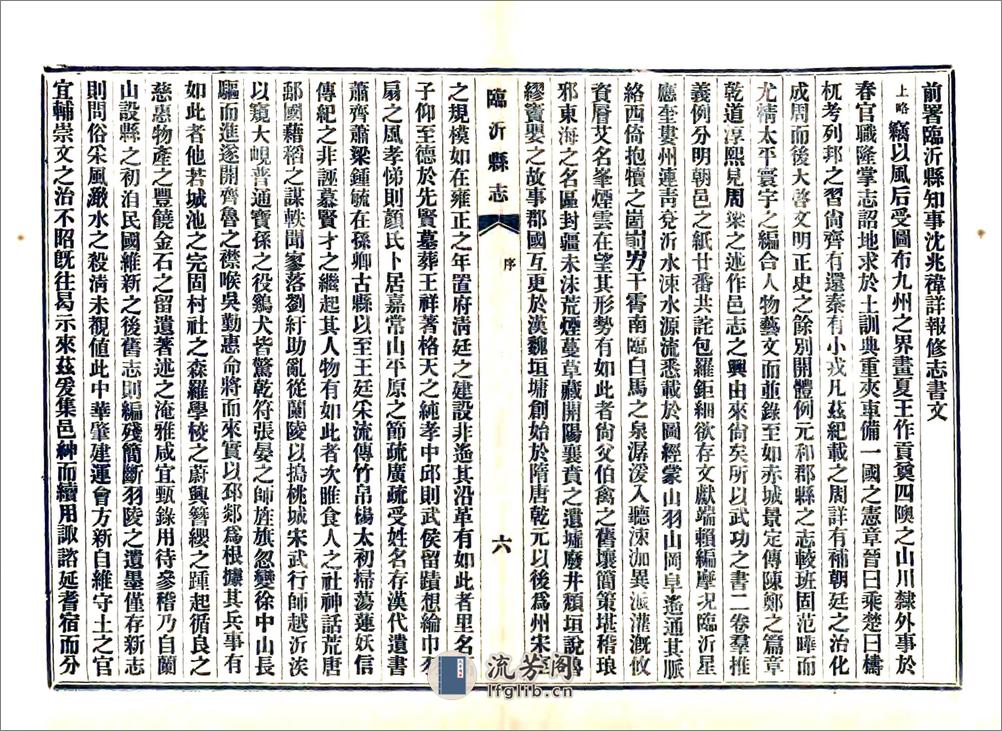 前署臨沂縣知事沈兆禕詳報修志書文
上略竊以風后受圖布九州之界畫夏王作貢奠四隩之山川隸外事於
春官職隆掌志詔地求於土訓典重夾車備一國之憲章晉曰乘楚曰檮
杌考列邦之習尙齊有還秦有小戎凡茲紀載之周詳有補朝廷之治化
成周而後大啓文明正史之餘別開體例元和郡縣之志較班固范曄而
尤精太平寰宇之編合人物藝文而並錄至如赤城景定傳陳鄭之篇章
乾道淳熙見周梁之述作邑志之興由來尙矣所以武功之書二卷羣推
義例分明朝邑之紙廿番共詫包羅鉅細欲存文獻端賴編摩況臨沂星
應奎婁州連靑兗沂水涑水源流悉載於圖經蒙山羽山岡阜遙通其脈
絡西倚抱犢之崮岧屴干霄南臨白馬之泉潺湲入聽涑泇異派灌漑攸
資厝艾名峯煙雲在望其形勢有如此者尙父伯禽之舊壤簡策堪稽琅
邪東海之名區封疆未沫荒煙蔓草藏開陽襄賁之遺墟廢井頹垣說魯
繆竇嬰之故事郡國互更於漢魏垣墉創始於隋唐乾元以後爲州宋室
之規模如在雍正之年置府淸廷之建設非遙其沿革有如此者里名曾
臨沂縣志
序
六
子仰至德於先賢墓葬王祥著格天之純孝中邱則武侯留蹟想綸巾羽
扇之風孝悌則顏氏卜居嘉常山平原之節疏廣疏受姓名存漢代遺書
蕭齊蕭梁鍾毓在孫卿古縣以至王廷宋流傳竹帛楊太初掃蕩蓮妖信
傳紀之非誣慕賢才之繼起其人物有如此者次睢食人之社神話荒唐
鄅國藉稻之謀軼聞寥落劉紆助亂從蘭陵以搗桃城宋武行師越沂浚
以窺大峴普通寶孫之役鷄犬皆驚乾符張晏之師旌旗忽變徐中山長
驅而進遂開齊魯之襟喉吳勤惠命將而來實以邳郯爲根據其兵事有
如此者他若城池之完固村社之森羅學校之蔚興簪纓之踵起循良之
慈惠物產之豐饒金石之留遺著述之淹雅咸宜甄錄用待參稽乃自蘭
山設縣之初洎民國維新之後舊志則編殘簡斷羽陵之遺墨僅存新志
則問俗采風澉水之殺靑未覩値此中華肇建運會方新自維守土之官
宜輔崇文之治不昭旣往曷示來茲爰集邑紳而續用諏諮延耆宿而分
流芳阁
lfglib.cn